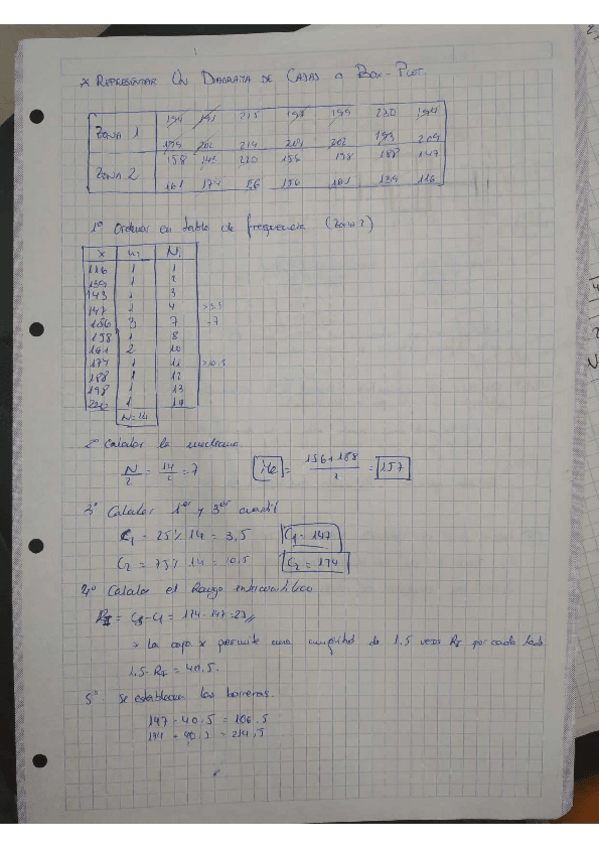 * REPRESENTAR UN DIAGRAMA DE CAJAS O BOX-PLOT.
ZONA 1
214 201 202 193 209
ZONA 2
158 220 156 198 188 147
161 174 56 156 161 139 116
1º Ordenar en tabla de frequencia (Zona 2)
X ni Ni
116 1 1
139 1 2
143 1 3
147 1 4 >3.5
156 3 7 =7
158 1 8
161 2 10
174 1 11 >10.5
188 1 12
198 1 13
220 1 14
N=14
2º Calcular la mediana
N/2 = 14/2 = 7 Me = 156+158/2 = 157
3º Calcular 1er y 3er cuartil
C1 = 25% 14 = 3,5 C1 = 147
C2 = 75% 14 = 10.5 C2 = 174
4º Calcular el Rango intercuartílico
RI = C3-C1 = 174-147=27
> La caja x permite una amplitud de 1.5 veces RI por cada lado
1.5·RI = 40.5.
5º Se establecen las barreras.
147-40.5 = 106.5
174+40.5 = 214.5